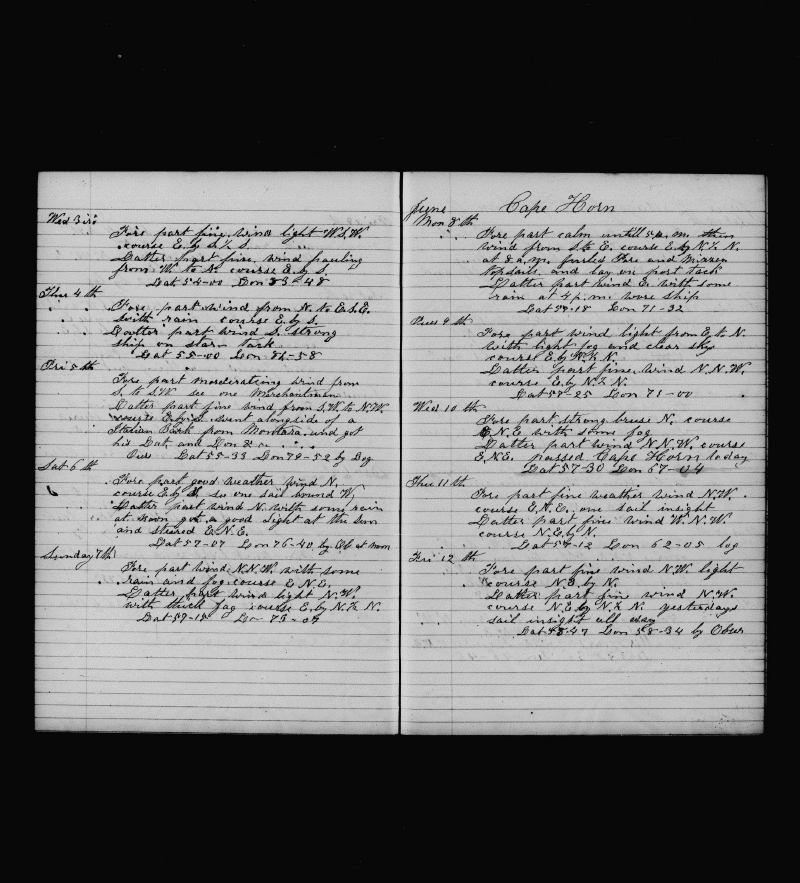 Wed 3rd
Fore part fine wind light W.S.W.
course E. by S. ½ S.
Latter part fine, wind hauling
from W. to N. course E. by S.
Lat 54-00 Lon 83-48
Thur 4th
Fore part wind from N. to E.S.E.
with rain course E. by S.
Latter part wind S. strong
ship on starb tack
Lat 55-00 Lon 82-58
Fri 5th
Fore part moderating wind from
S. to S.W. see one Merchantman
Latter part fine wind from S.W. to N.W.
course E. by S. went alongside of a
Italian Bark from and got
his Lat. and Lon
Our Lat 55-33 Lon 79-52 by Log
Sat 6th
Fore part good weather wind N.
course E. by S. se one sail bound W,
Latter part wind N. with some rain
at noon got a good sight at the sun
and steared E.N.E.
Lat 57-07 Lon 76-40 by Ob at noon
Sunday 7th
Fore part wind N.N.W. with some
rain and fog course E.N.E.
Latter part wind light N.W.
with thick fog course E. by N. ½ N.
Lat 57-15 Lon 75-07
June Cape Horn
Mon 8th
Fore part calm until 5 a.m. then
wind from S. to E. course E. by N. ½ N.
at 8 a.m. furled Fore and Mizzen
topsails and lay on port tack
Latter part wind E. with some
rain at 4 p.m. wore ship
Lat 57-18 Lon 71-32
Tues 9th
Fore part wind light from E. to N.
with light fog and clear sky
course E. by N. ½ N.
Latter part fine, wind N.N.W.
course E. by N. ½ N.
Lat 57-25 Lon 71-00
Wed 10th
Fore part strong breese N. course
E.N.E with some fog
Latter part wind N.N.W. course
E.N.E. passed Cape Horn today
Lat 57-30 Lon 67-04
Thu 11th
Fore part fine weather wind N.W.
course E.N.E. one sail insight
Latter part fine wind W.N.W.
course N.E. by N.
Lat 57-12 Lon 62-05 log
Fri 12th
Fore part fine wind N.W. light
course N.E. by N.
Latter part fine wind N.W.
course N.E. by N. ½ N. yesterdays
sail insight all day
Lat Lon 58-34 by Obser